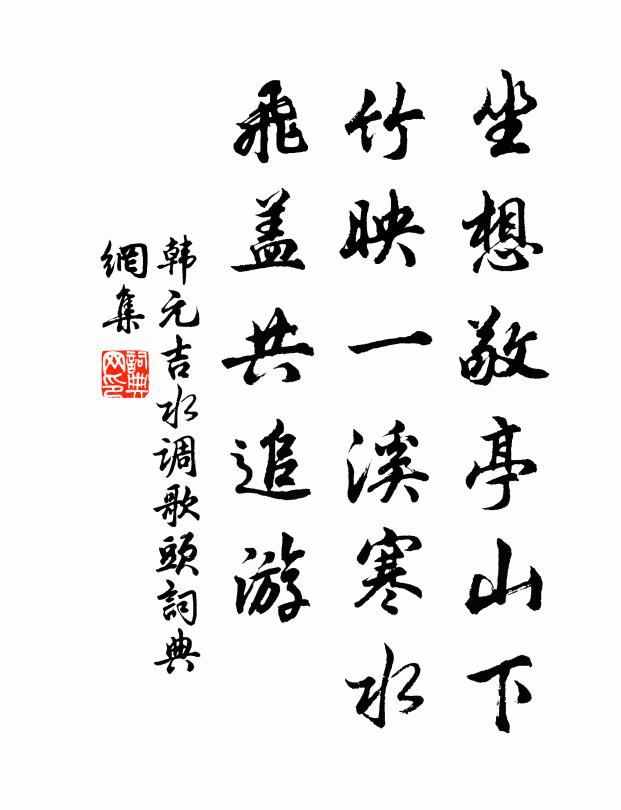 坐想敬亭山下
竹映一溪寒水
飛盖共追游
韩元吉水调歌頭詞典
網集
詞典
网印